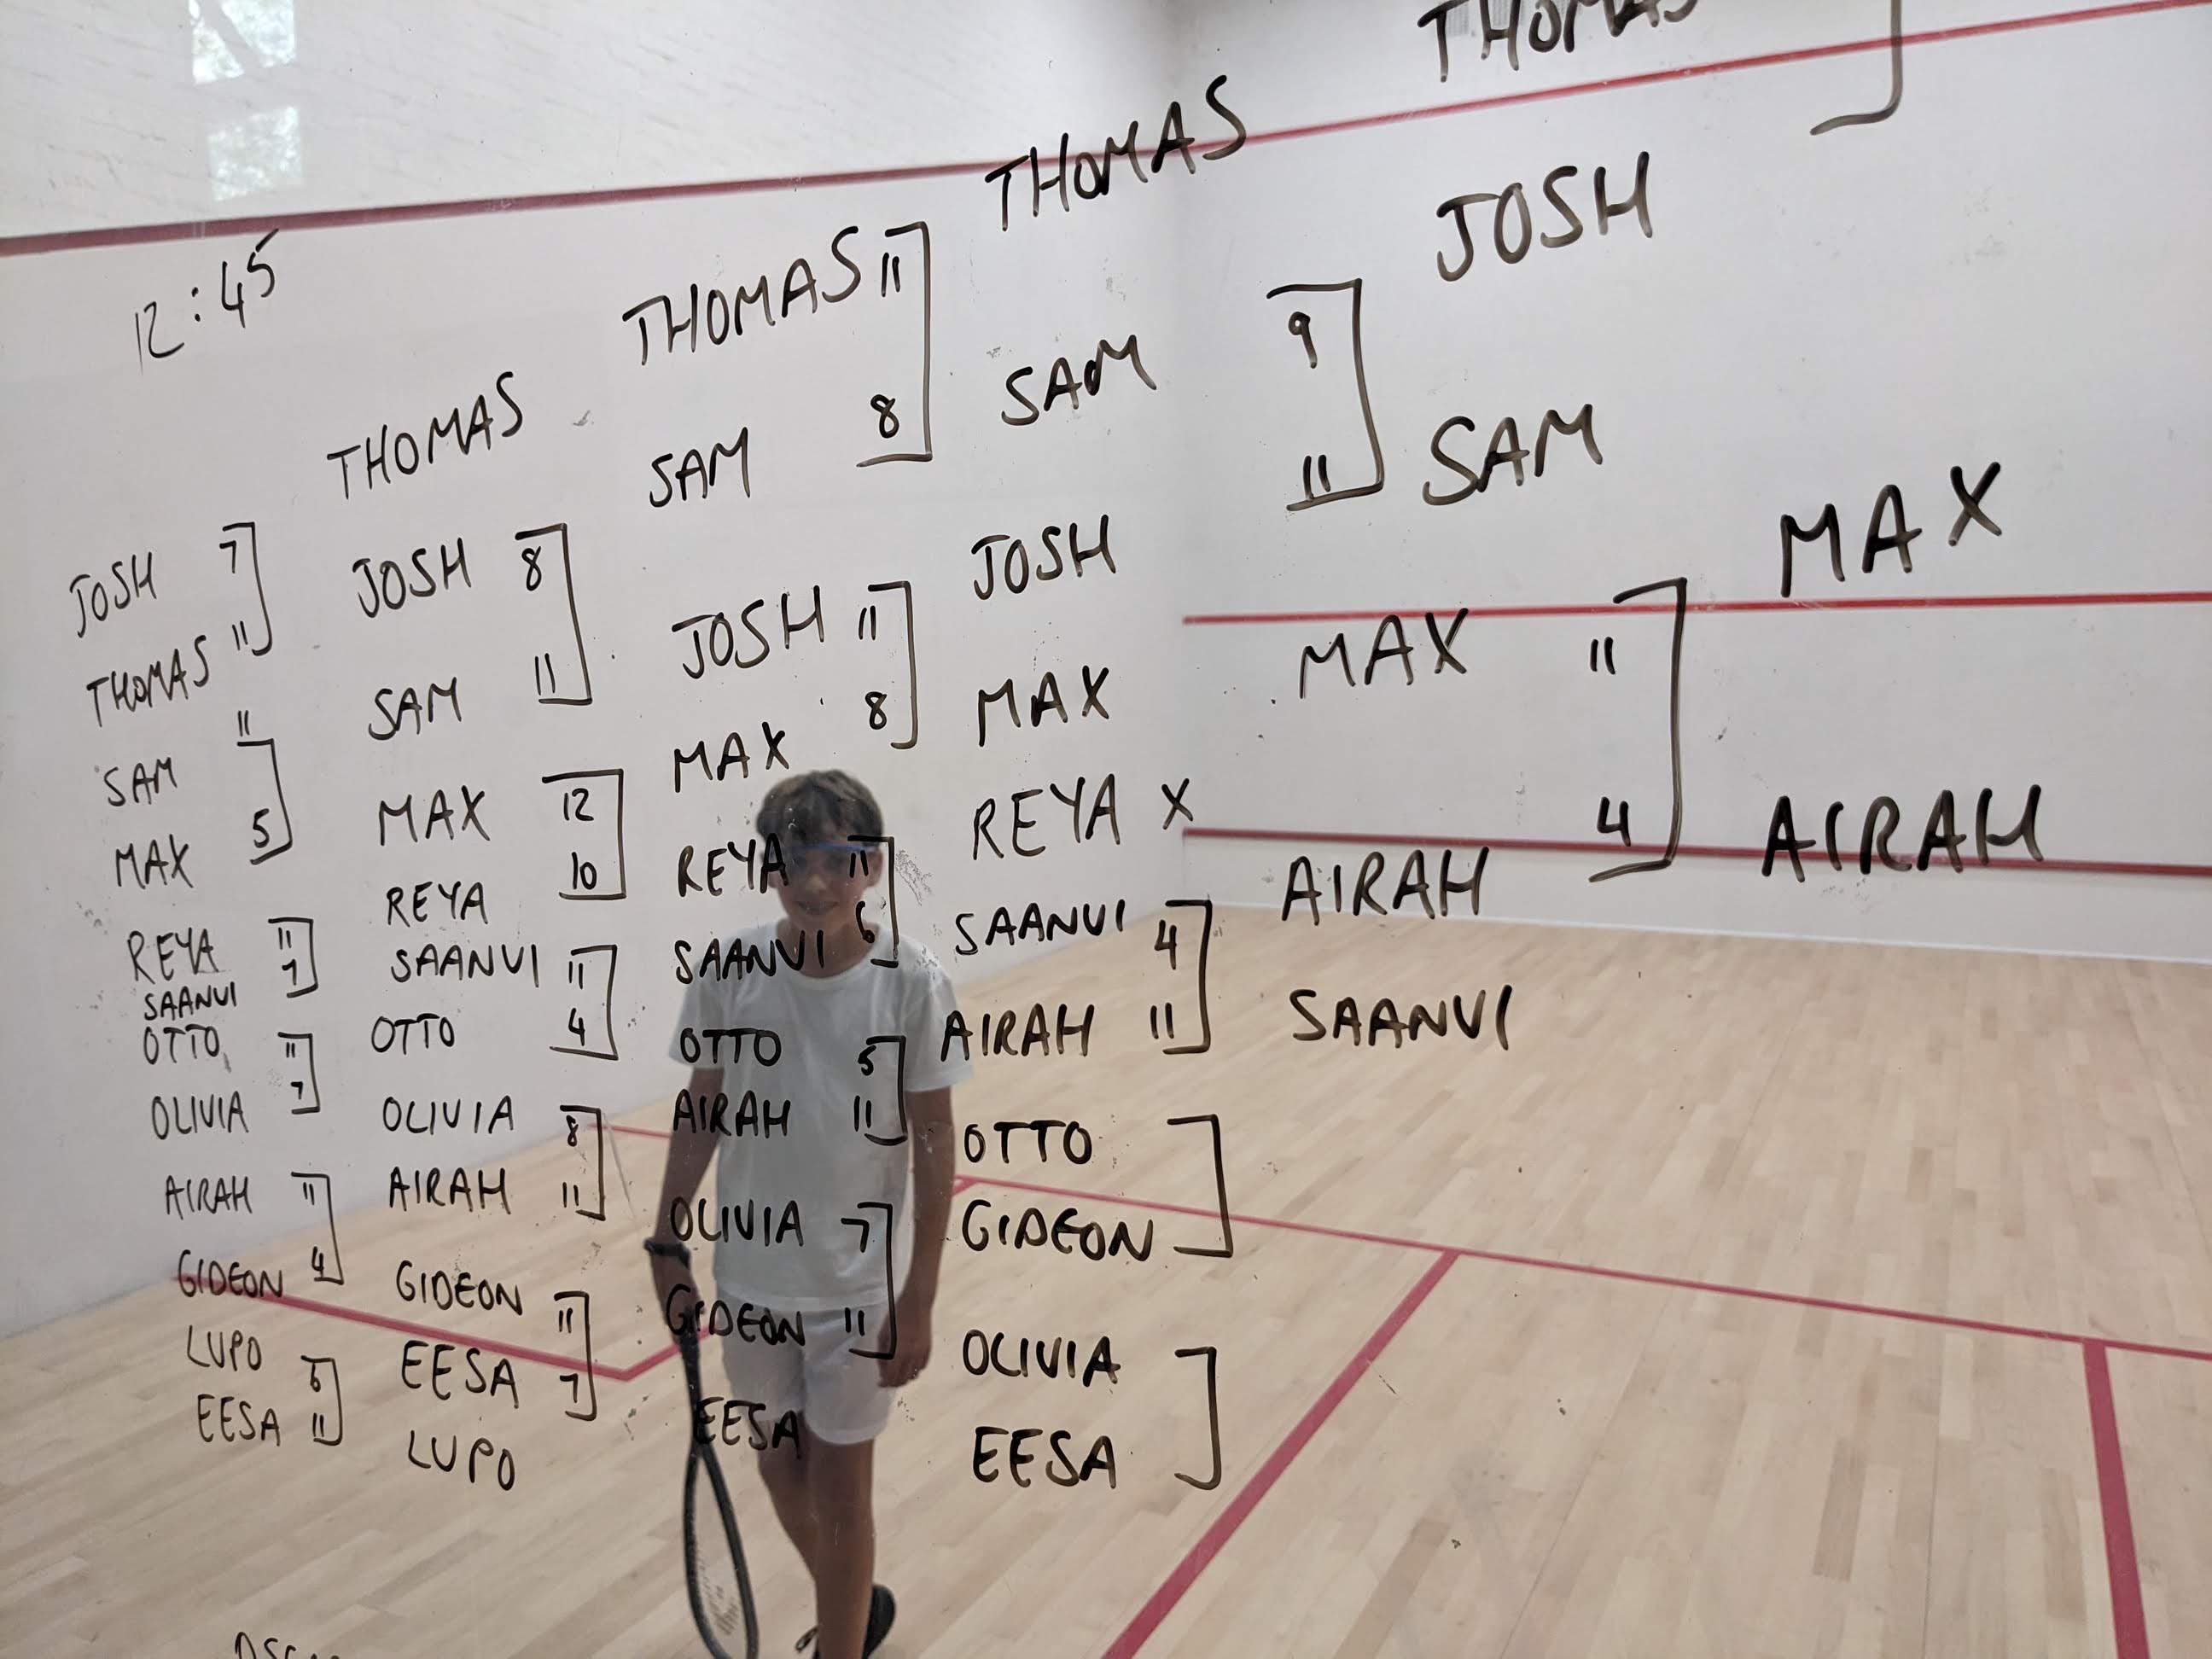 12:45
JOSH 7
THOMAS 11
SAM 11
MAX 5
REYA 11
SAANVI 7
OTTO 11
OLIVIA 7
AIRAH 11
GIDEON 4
LUPO 6
EESA 11
THOMAS
JOSH 8
SAM 11
MAX 12
REYA 10
SAANVI 11
OTTO 4
OLIVIA 8
AIRAH 11
GIDEON 11
EESA 7
LUPO
THOMAS 11
SAM 8
JOSH 11
MAX 8
REYA 11
SAANVI 6
OTTO 5
AIRAH 11
OLIVIA 7
GIDEON 11
EESA
THOMAS
SAM 9
JOSH 11
MAX
REYA X
SAANVI 4
AIRAH 11
OTTO
GIDEON
OLIVIA
EESA
THOMAS
JOSH
SAM
MAX 11
AIRAH 4
SAANVI
MAX
AIRAH